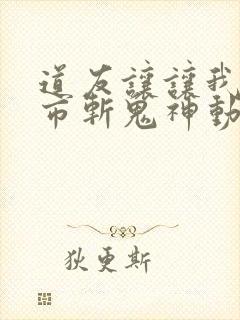 道友讓讓我
币斬鬼神動
狄更斯